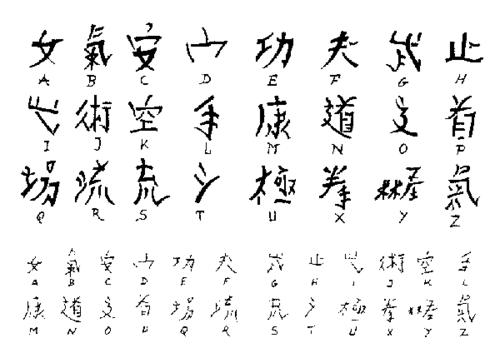 女 氣 安 宀 功 夫 武 止
A B C D E F G H
弋 術 空 手 康 道 辶 首
I J K L M N O P
場 流 㐬 氵 極 拳 氣
Q R S T U X Y Z
女 氣 安 宀 功 夫 武 止 弋 術 空 手
A B C D E F G H I J K L
康 道 辶 首 場 流 㐬 氵 極 拳 氣
M N O P Q R S T U X Y Z